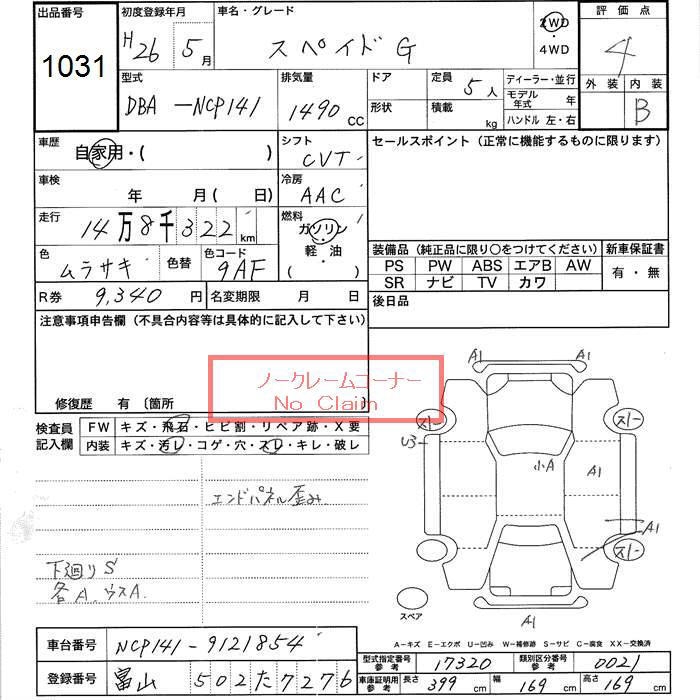 出品番号 初度登録年月 車名・グレード 評価点
1031 H26 5月 スペイド G 2WD・4WD 4
型式 排気量 ドア 定員 5人 ディーラー・並行 外装 内装
DBA-NCP141 1490cc 形状 積載 kg モデル年式 年 B
ハンドル 左・右
車歴 自家用・( ) シフト CVT セールスポイント(正常に機能するものに限ります)
車検 年 月( 日) 冷房 AAC
走行 14万8千322km 燃料 ガソリン・軽油・( )
色 ムラサキ 色替 色コード 9AF
装備品(純正品に限り○をつけてください) 新車保証書
PS PW ABS エアB AW 有・無
SR ナビ TV カワ
R券 9,340円 名変期限 月 日 後日品
注意事項申告欄(不具合内容等は具体的に記入して下さい)
ノークレームコーナー
No Claim
修復歴 有〔箇所 〕
検査員記入欄 FW キズ・飛石・ヒビ割・リペア跡・X要
内装 キズ・汚レ・コゲ・穴・スレ・キレ・破レ
エンドパネル歪み
下廻りS
各A、ウスA.
A1 A1
スレ スレ
U3
小A A1
A1
スレ
スペア A1
A-キズ E-エクボ U-凹み W-補修跡 S-サビ C-腐食 XX-交換済
車台番号 NCP141-9121854
型式指定番号参考 17320 類別区分番号参考 0021
登録番号 富山 502 た 7276
車庫証明用参考 長さ 399cm 幅 169cm 高さ 169cm